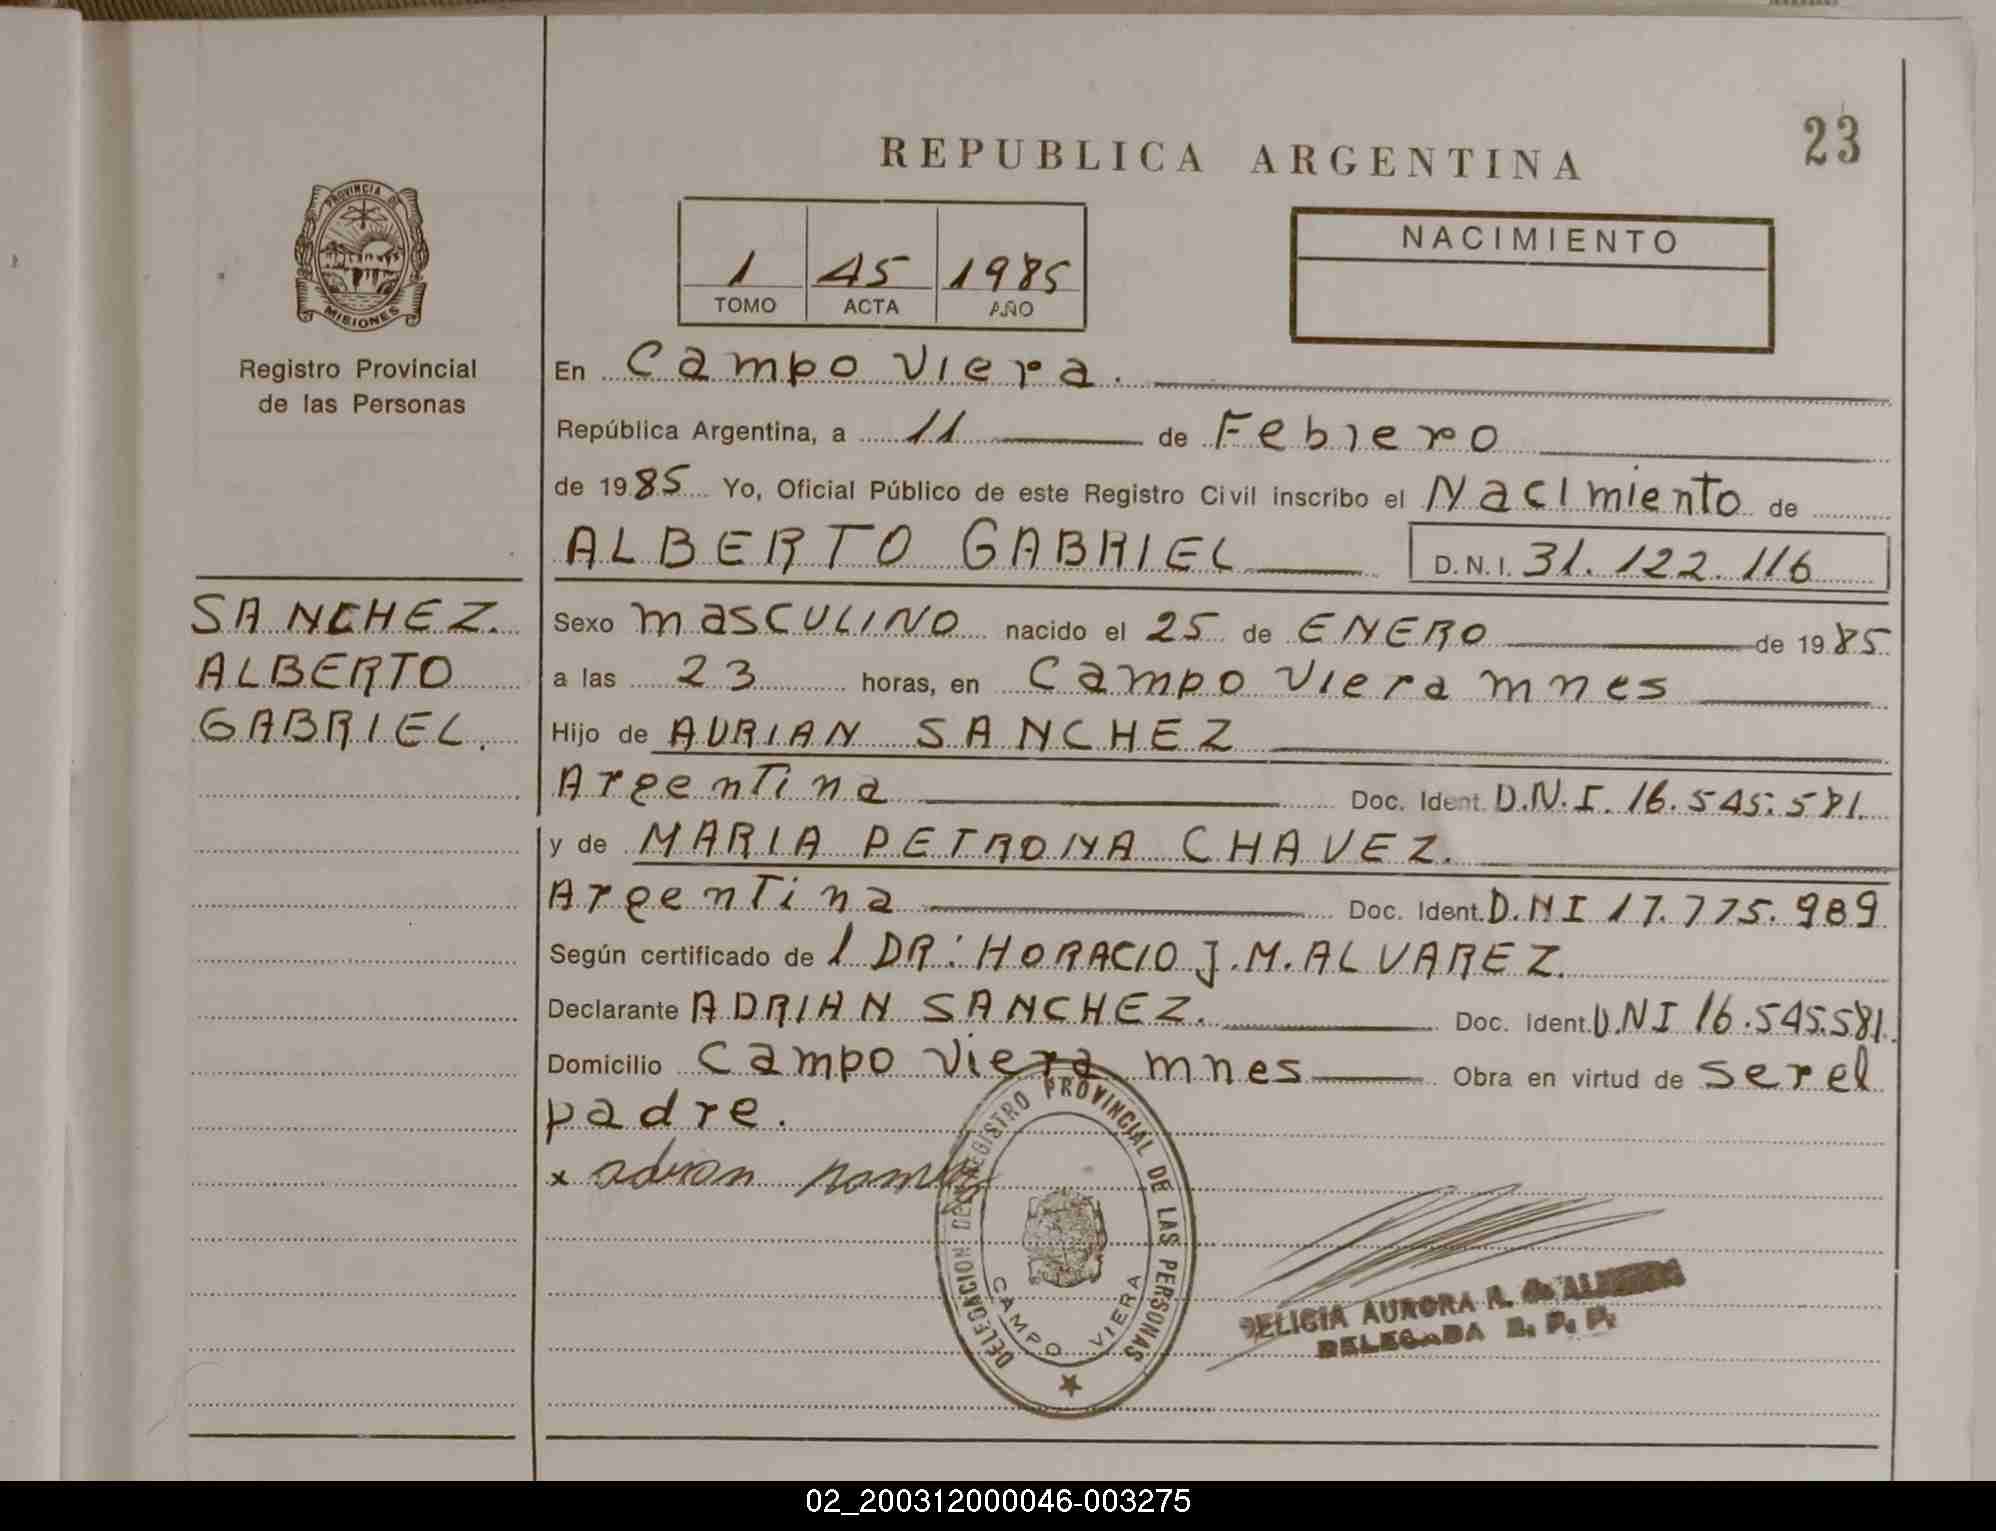 23
REPUBLICA ARGENTINA
PROVINCIA DE
MISIONES
Registro Provincial
de las Personas
1 45 1985
TOMO ACTA AÑO
NACIMIENTO
En Campo Viera.
República Argentina, a 11 de Febrero
de 1985 Yo, Oficial Público de este Registro Civil inscribo el Nacimiento de
ALBERTO GABRIEL D.N.I. 31.122.116
SANCHEZ.
ALBERTO
GABRIEL.
Sexo masCULINO nacido el 25 de ENERO de 1985
a las 23 horas, en Campo Viera mnes
Hijo de ADRIAN SANCHEZ
Argentina Doc. Ident. D.N.I. 16.545.581.
y de MARIA PETRONA CHAVEZ.
Argentina Doc. Ident. D.NI 17.775.989
Según certificado de l DR: HORACIO J.M. ALVAREZ.
Declarante ADRIAN SANCHEZ. Doc. Ident. D.NI 16.545.581.
Domicilio Campo Viera mnes Obra en virtud de ser el
padre.
x adrian
DELEGACION DEL REGISTRO PROVINCIAL DE LAS PERSONAS
CAMPO VIERA
DELIGIA AURORA R. de
DELEGADA R. P. P.
02_200312000046-003275